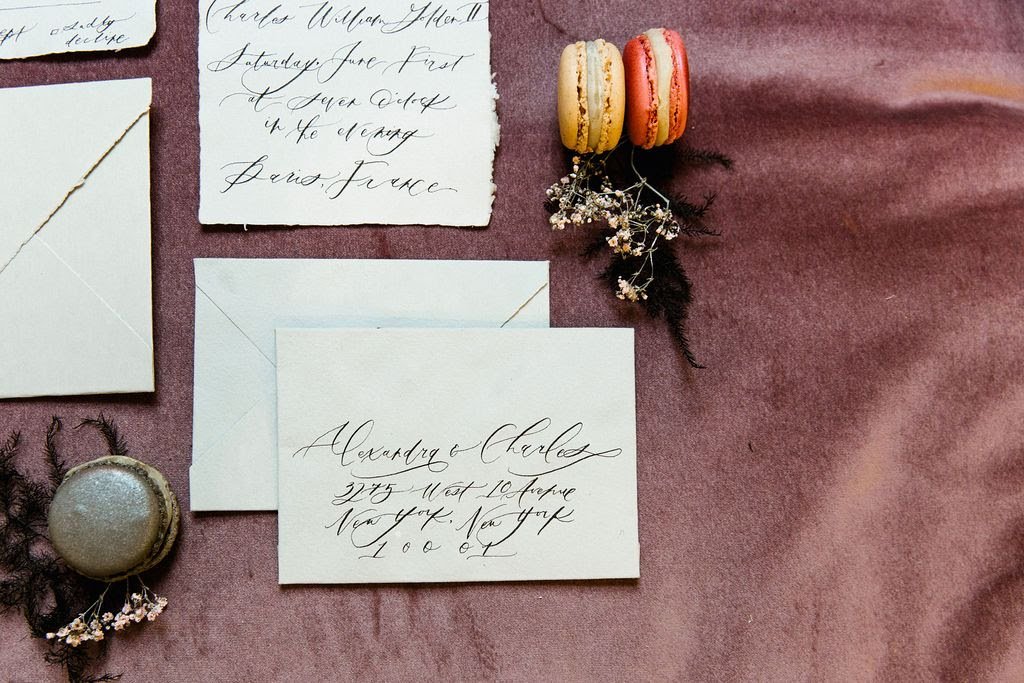 sadly
decline
Charles William Golden II
Saturday, June First
at Seven O'clock
in the evening
Paris, France
Alexandra & Charles
3275 West 10 Avenue
New York, New York
10001